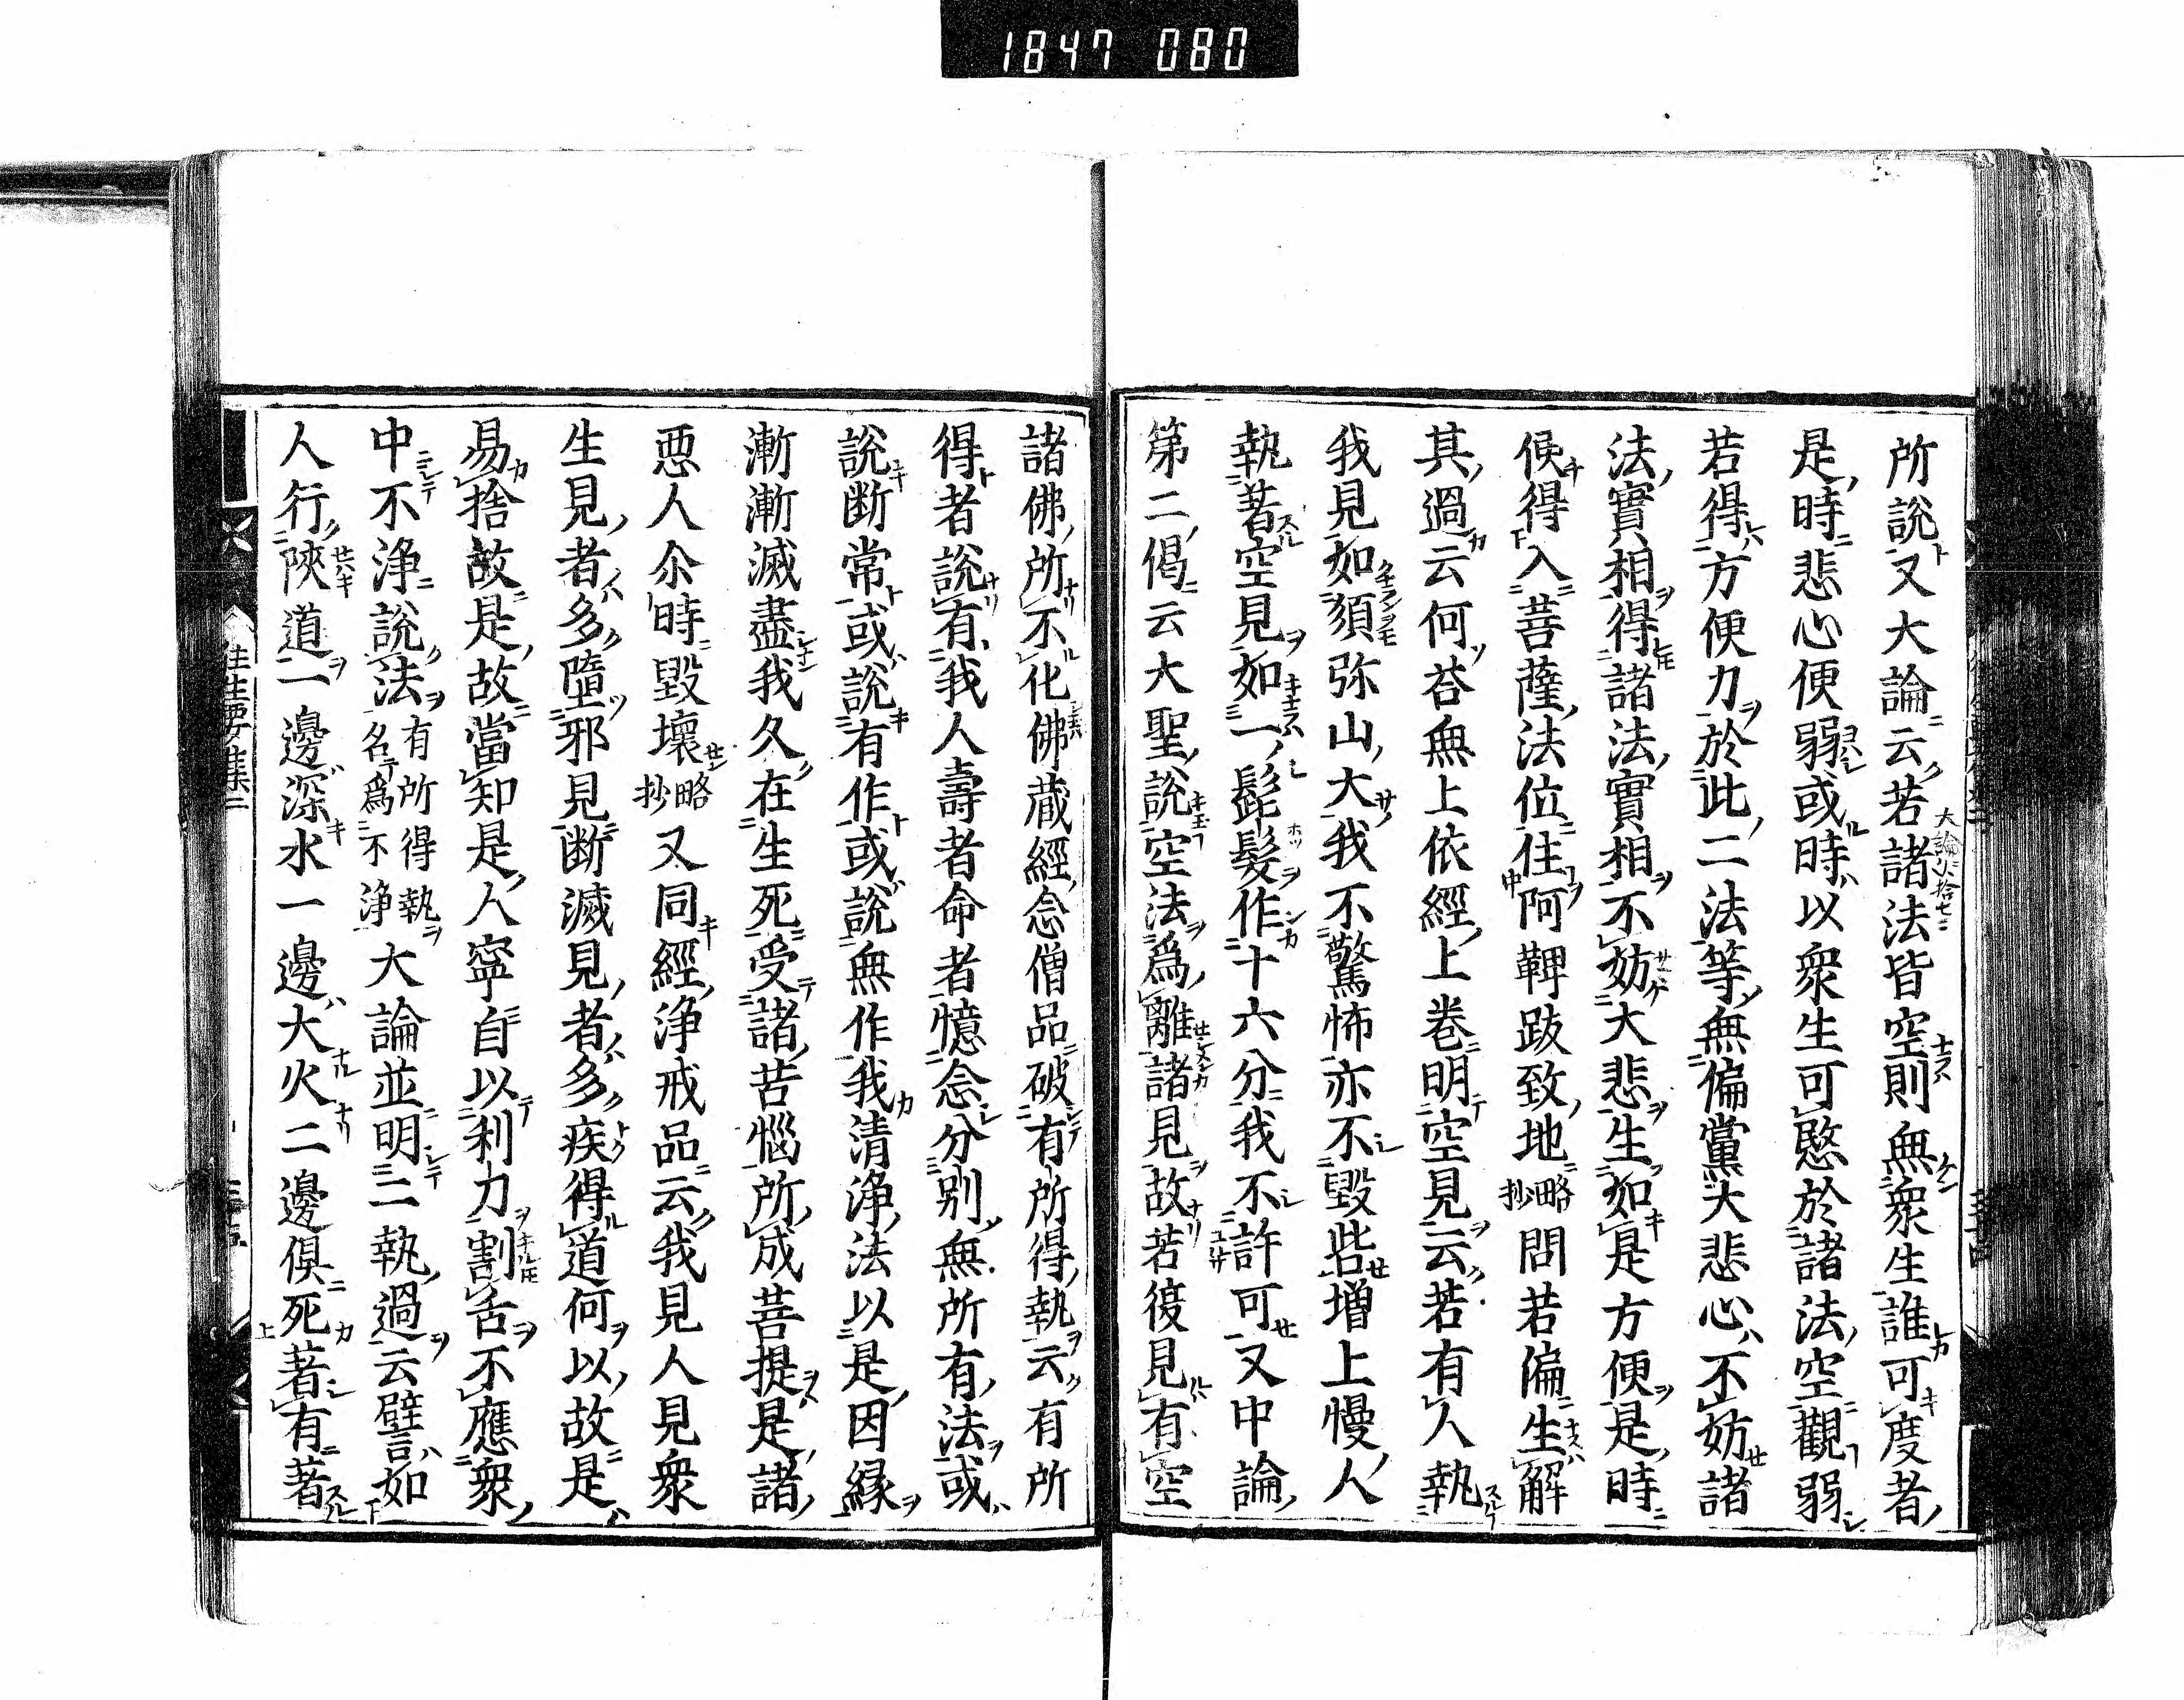 1847 080
所說又大論云若諸法皆空則無衆生誰可度者
是時悲心便弱或時以衆生可愍於諸法空觀弱
若得方便力於此二法等無偏黨大悲心不妨諸
法實相得諸法實相不妨大悲生如是方便是時
便得入菩薩法位住阿鞞跋致地略抄問若偏生解
其過云何荅無上依經上卷明空見云若有人執
我見如須弥山大我不驚怖亦不毀呰增上慢人
執著空見如一髦髮作十六分我不許可又中論
第二偈云大聖說空法爲離諸見故若復見有空
諸佛所不化佛藏經念僧品破有所得執云有所
得者說有我人壽者命者憶念分別無所有法或
說断常或說有作或說無作我清浄法以是因縁
漸漸滅盡我久在生死受諸苦惱所成菩提是諸
悪人尒時毀壞略抄又同經浄戒品云我見人見衆
生見者多墮邪見断滅見者多疾得道何以故是
易捨故是故當知是人寧自以利刀割舌不應衆
中不浄說法有所得執名爲不浄大論並明二執過云譬如
人行陜道一邊深水一邊大火二邊俱死著有著
往生要集